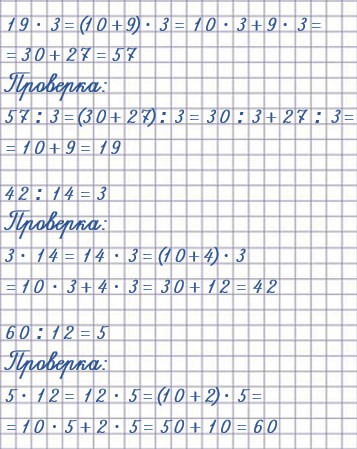 19 · 3 = (10 + 9) · 3 = 10 · 3 + 9 · 3 =
= 30 + 27 = 57
Проверка:
57 : 3 = (30 + 27) : 3 = 30 : 3 + 27 : 3 =
= 10 + 9 = 19
42 : 14 = 3
Проверка:
3 · 14 = 14 · 3 = (10 + 4) · 3
= 10 · 3 + 4 · 3 = 30 + 12 = 42
60 : 12 = 5
Проверка:
5 · 12 = 12 · 5 = (10 + 2) · 5 =
= 10 · 5 + 2 · 5 = 50 + 10 = 60